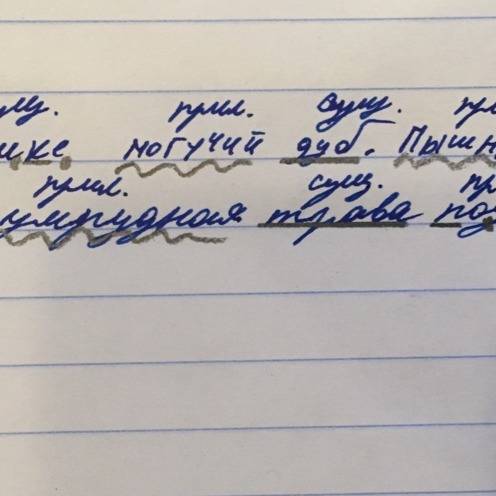 сущ. прил. сущ. прил.
могучий дуб. Пышн
прил. сущ. пр
умрудная трава под